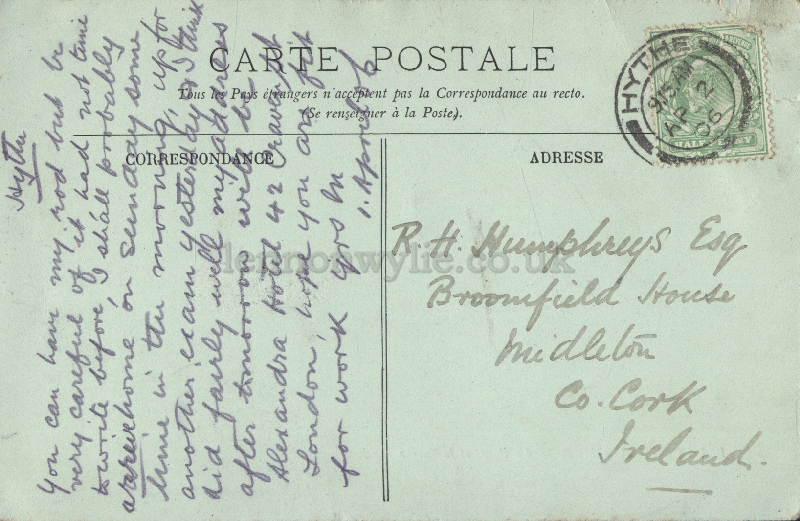 CARTE POSTALE
Tous les Pays étrangers n'acceptent pas la Correspondance au recto.
(Se renseigner à la Poste).
CORRESPONDANCE
ADRESSE
HYTHE
9.15 AM
AP 2
06
HALFPENNY
R. H. Humphreys Esq
Broomfield House
Midleton
Co. Cork
Ireland.
lennonwylie.co.uk
Hythe
You can have my rod but be
very careful of it had not time
to write before, I shall probably
arrive home on Sunday some
time in the morning, up for
another exam yesterday & I think
did fairly well my address
after tomorrow will be
Alexandra Hotel 42 Craven St
London, hope you are fit
for work yrs
1. April 06